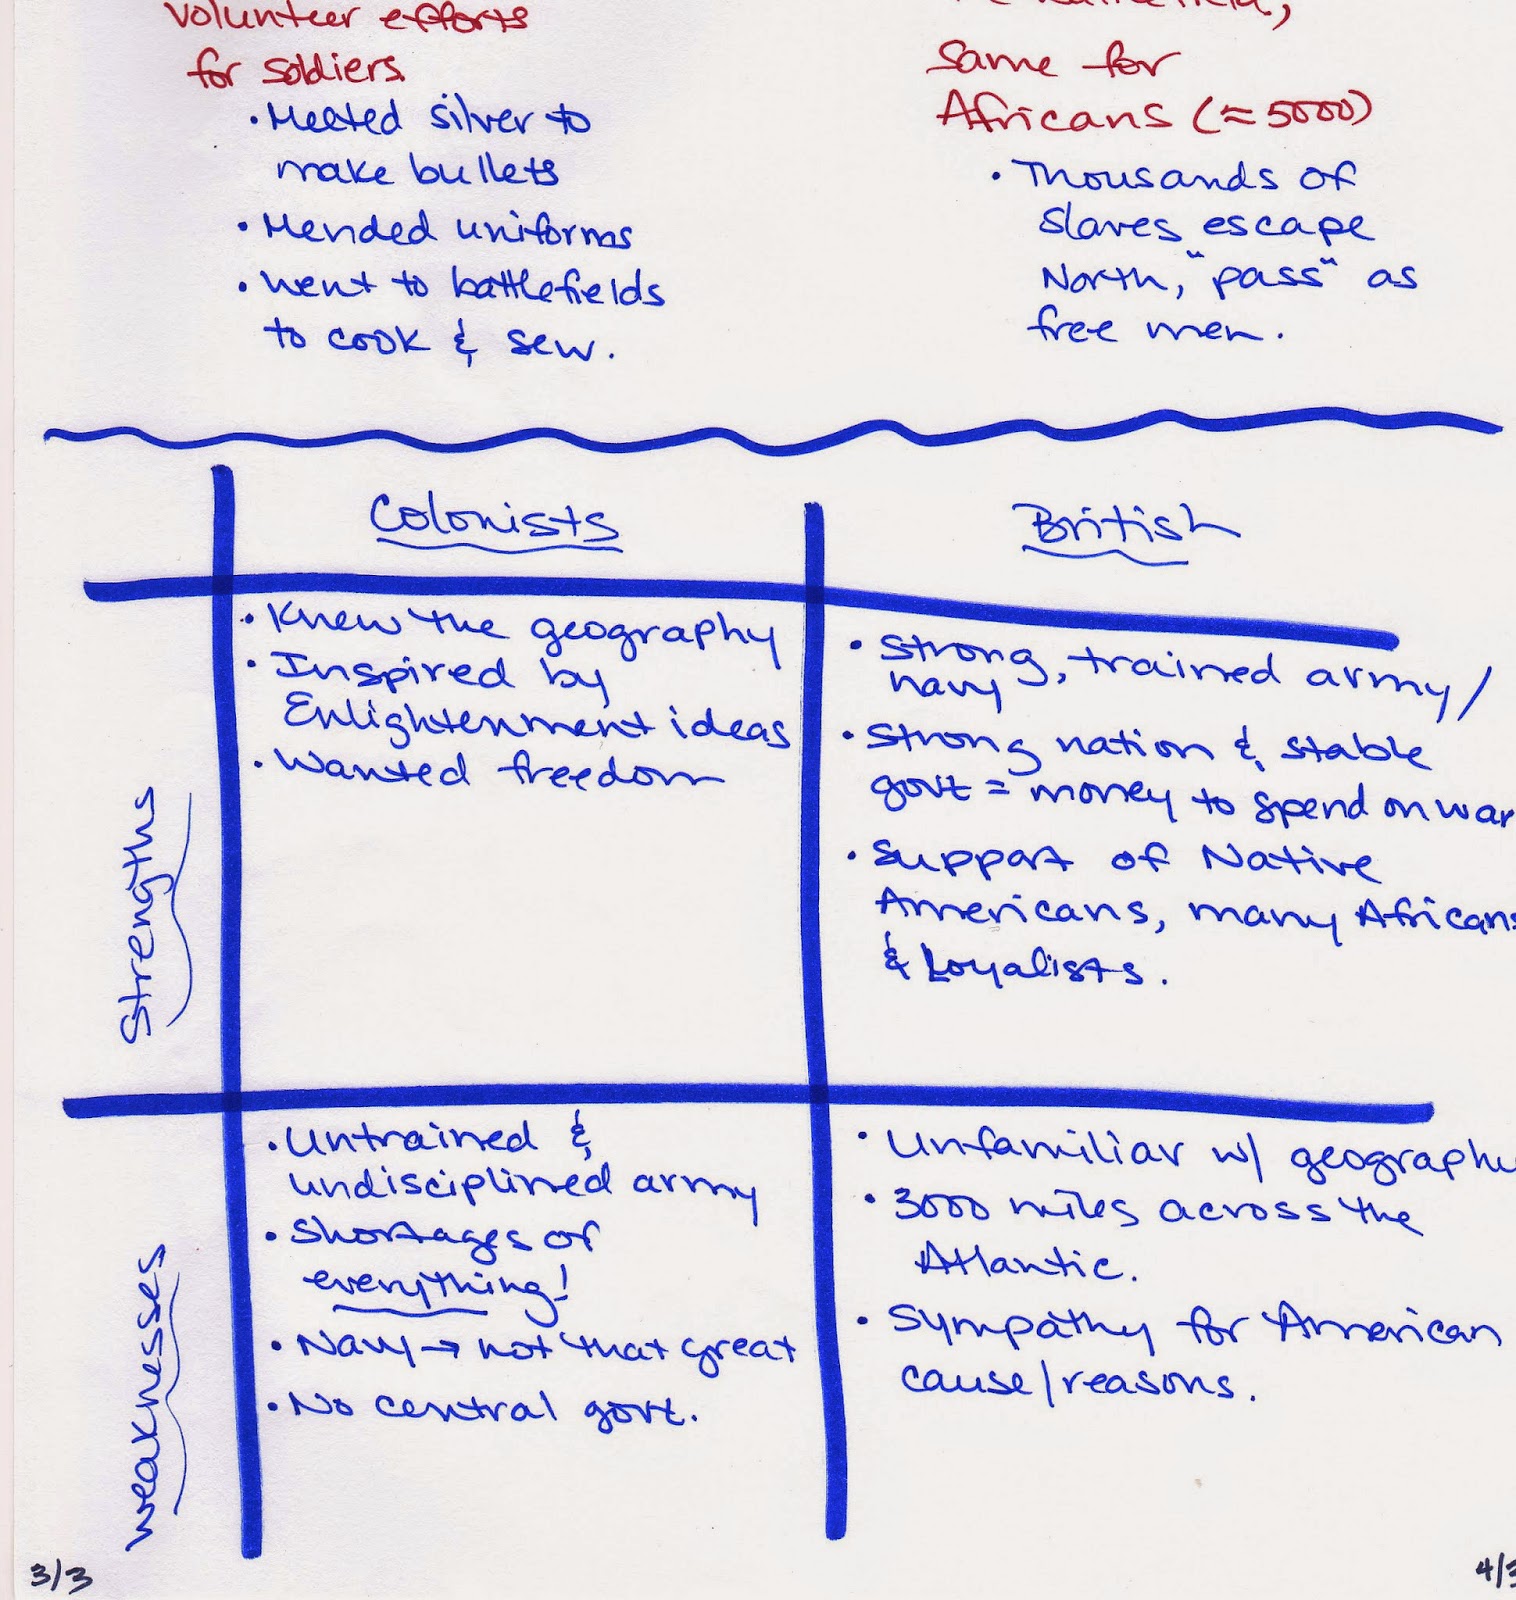 volunteer efforts
for soldiers.
• Melted silver to
make bullets
• Mended uniforms
• Went to battlefields
to cook & sew.
same for
Africans (≈5000)
• Thousands of
slaves escape
North, "pass" as
free men.
Colonists
British
Strengths
• Knew the geography
• Inspired by
Enlightenment ideas
• Wanted freedom
• Strong, trained army/
navy
• Strong nation & stable
govt = money to spend on war
• Support of Native
Americans, many Africans
& Loyalists.
Weaknesses
• Untrained &
undisciplined army
• Shortages of
everything!
• Navy → not that great
• No central govt.
• Unfamiliar w/ geography
• 3000 miles across the
Atlantic.
• Sympathy for American
cause/reasons.
3/3
4/3